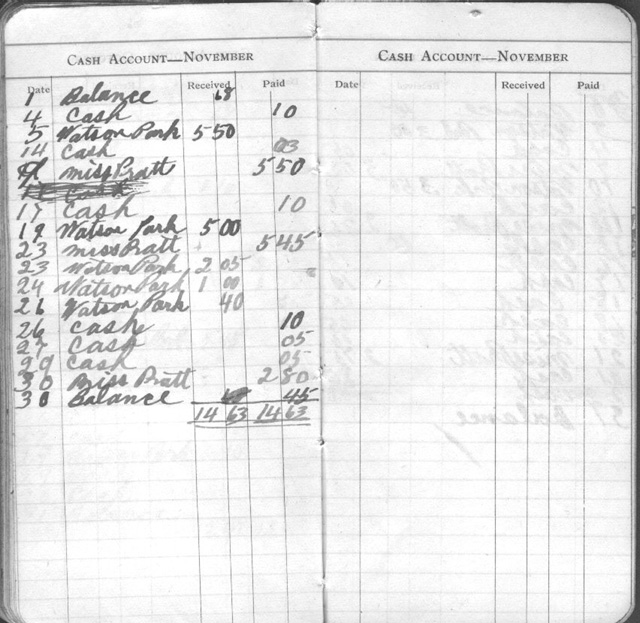 CASH ACCOUNT—NOVEMBER
Date Received Paid
1 Balance 68
4 Cash 10
5 Watson Park 5 50
14 Cash 03
Miss Pratt 5 50
Cash
17 Cash 10
19 Watson Park 5 00
23 Miss Pratt 5 45
23 Watson Park 2 05
24 Watson Park 1 00
26 Watson Park 40
26 Cash 10
27 Cash 05
29 Cash 05
30 Miss Pratt 2 80
30 Balance 45
14 63 14 63
CASH ACCOUNT—NOVEMBER
Date Received Paid